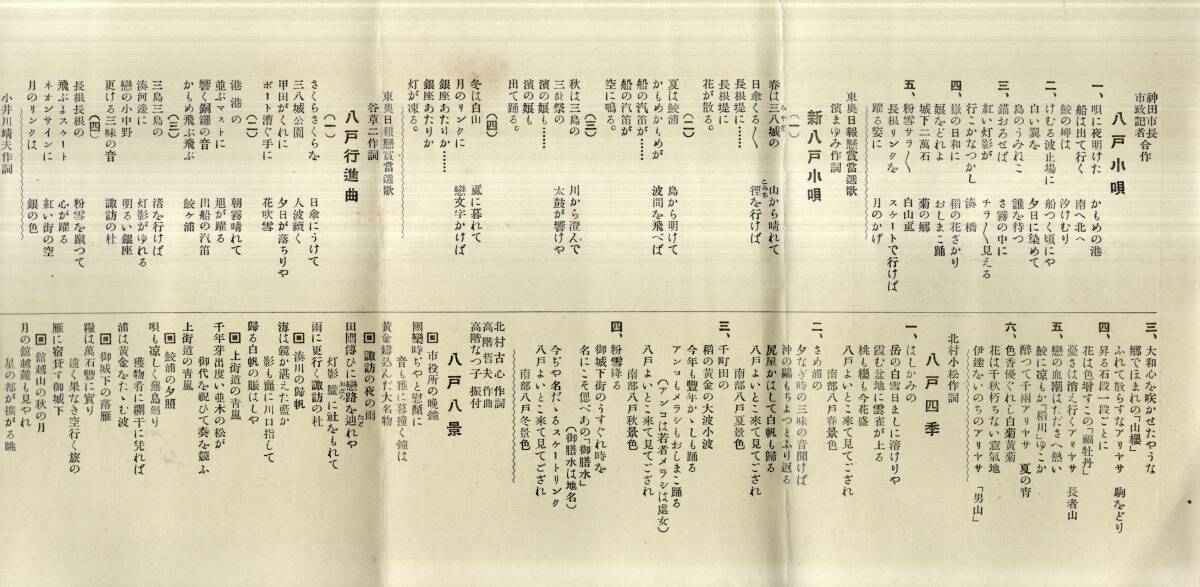 神田市長
市政記者合作
八戸小唄
一、唄に夜明けた　かもめの港
船は出て行く　南へ北へ
鮫の岬は　汐けむり
二、けむる波止場に　船つく頃にや
白い翼を　夕日に染めて
島のうみねこ　誰を待つ
三、錨おろせば　さ霧の中に
紅い灯影が　チラ〱見える
行こかなつかし　湊橋
四、嶽の日和に　稻の花ざかり
娘をどれよ　おしまこ踊
城下二萬石　菊の郷
五、粉雪サラ〱　白山颪
長根リンクを　スケートで行けば
躍る姿に　月のかげ
東奥日報懸賞當選歌
濱まゆみ作詞
新八戸小唄
(一)
春は三八城の　山から晴れて
日傘くる〱　徑を行けば
長根堤に……
長根堤に
花が散る。
(二)
夏は鮫浦　島から明けて
かもめかもめが　波間を飛べば
船の汽笛が
船の汽笛が
空に鳴る。
(三)
秋は三島の　川から澄んで
三社祭の　太鼓が響けや
濱の娘も……
濱の娘も
出て踊る。
(四)
冬は白山　颪に暮れて
月のリンクに　戀文字かけば
銀座あたりが……
銀座あたりか
灯が凍る。
東奥日報懸賞當選歌
谷草二作詞
八戸行進曲
(一)
さくらさくらを　日傘にうけて
三八城公園　人波續く
甲田がくれに　夕日が落ちりや
ボート漕ぐ手に　花吹雪
(二)
港港の　朝霧晴れて
並ぶマストに　旭が躍る
響く銅鑼の音　出船の汽笛
かもめ飛ぶ飛ぶ　鮫ヶ浦
(三)
三島三島の　渚を行けば
湊河邊に　灯影がゆれる
戀の小中野　明るい銀座
更ける三味の音　諏訪の杜
(四)
長根長根の　粉雪を蹴つて
飛ぶよスケート　心が躍る
ネオンサインに　紅い街の空
月のリンクは　銀の色
小井川靖夫作詞
三、大和心を咲かせたやうな
郷でほまれの「山櫻」
ふれて散らすなアリヤサ　駒をどり
四、昇る石段一段ごとに
花は色增すそこの「福牡丹」
憂さは消え行くアリヤサ　長者山
五、戀の血潮はたださへ熱い
鮫に凉もか「稻川」ゆこか
醉つて千兩アリヤサ　夏の宵
六、色香優ぐれし白菊黄菊
花は千秋朽ちない意氣地
伊達ないのちのアリヤサ　「男山」
北村小松作詞
八戸四季
一、はしかみの
岳の白雪日ましに溶けりや
霞む盆地に雲雀が上る
桃も櫻も今花盛
八戸よいとこ來て見てござれ
南部八戸春景色
二、さめ浦の
夕なぎ時の三味の音聞けば
沖の鷗もちよつとふり返る
尻屋かはして白帆も歸る
八戸よいとこ來て見てござれ
南部八戸夏景色
三、千町田の
稻の黄金の大波小波
今年も豐年かゝしも踊る
アンコもメラシもおしまこ踊る
(アンコは若者メラシは處女)
八戸よいとこ來て見てござれ
南部八戸秋景色
四、粉雪降る
御城下街のうすぐれ時を
名にこそ偲べあの「御膳水」
(御膳水は地名)
今ぢや名だゝるスケートリンク
八戸よいとこ來て見てござれ
南部八戸冬景色
北村古心作詞
高階哲夫作曲
高階なつ子振付
八戸八景
▣市役所の晩鐘
團欒時ちやと慰顏に
音も雅に暮撞く鐘は
黄金鑄込んだ大名物
▣諏訪の夜の雨
田圃傳ひに戀路を辿れや
灯影朧に祉をもれて
雨に更行く諏訪の杜
▣湊川の歸帆
海は鏡か湛えた藍か
影も麗に川口指して
歸る白帆の賑はしや
▣上街道の青嵐
千年芽出度い並木の松が
御代を祝ひて奏を競ふ
上街道の青嵐
▣鮫浦の夕照
唄も凉しく蕪島廻り
獲物肴に欄干に凭れば
浦は黄金をたゝむ波
▣御城下の落雁
糧は萬石豐に實り
遠く果なき空行く旅の
雁に宿貸す御城下
▣館越山の秋の月
月の館越麓も見やれ
星の都が擴がる眺